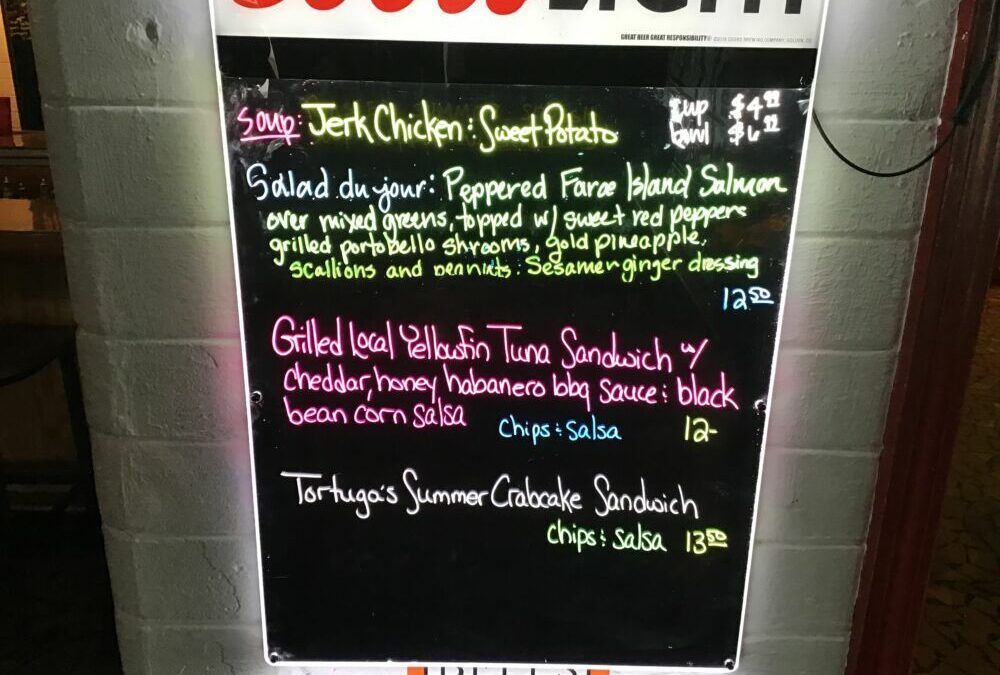 Coors LIGHT
GREAT BEER GREAT RESPONSIBILITY®
Soup: Jerk Chicken : Sweet Potato
cup $4.99
bowl $6.99
Salad du jour: Peppered Faroe Island Salmon
over mixed greens, topped w/ sweet red peppers
grilled portobello shrooms, gold pineapple,
scallions and peanuts : Sesame ginger dressing
12.50
Grilled Local Yellowfin Tuna Sandwich w/
cheddar, honey habanero bbq sauce : black
bean corn salsa
chips : salsa 12-
Tortuga's Summer Crabcake Sandwich
chips : salsa 13.50